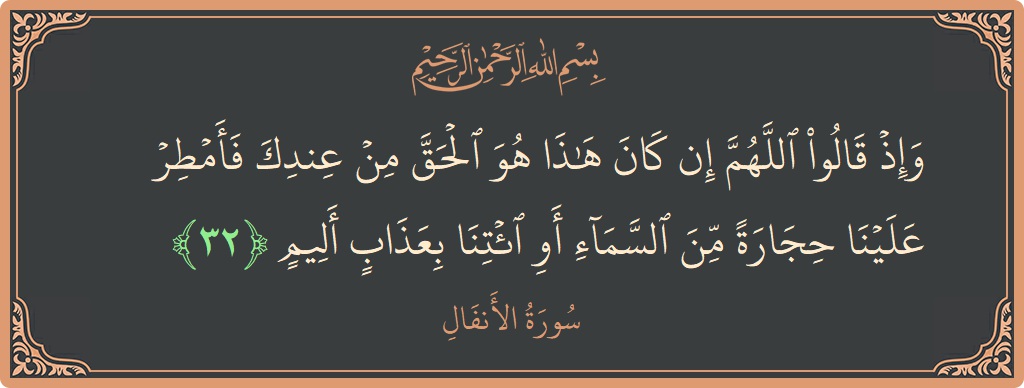 بِسْمِ اللَّهِ الرَّحْمَٰنِ الرَّحِيمِ
وَإِذْ قَالُوا۟ ٱللَّهُمَّ إِن كَانَ هَـٰذَا هُوَ ٱلْحَقَّ مِنْ عِندِكَ فَأَمْطِرْ
عَلَيْنَا حِجَارَةً مِّنَ ٱلسَّمَآءِ أَوِ ٱئْتِنَا بِعَذَابٍ أَلِيمٍ ﴿٣٢﴾
سُورَةُ الأَنفَالِ